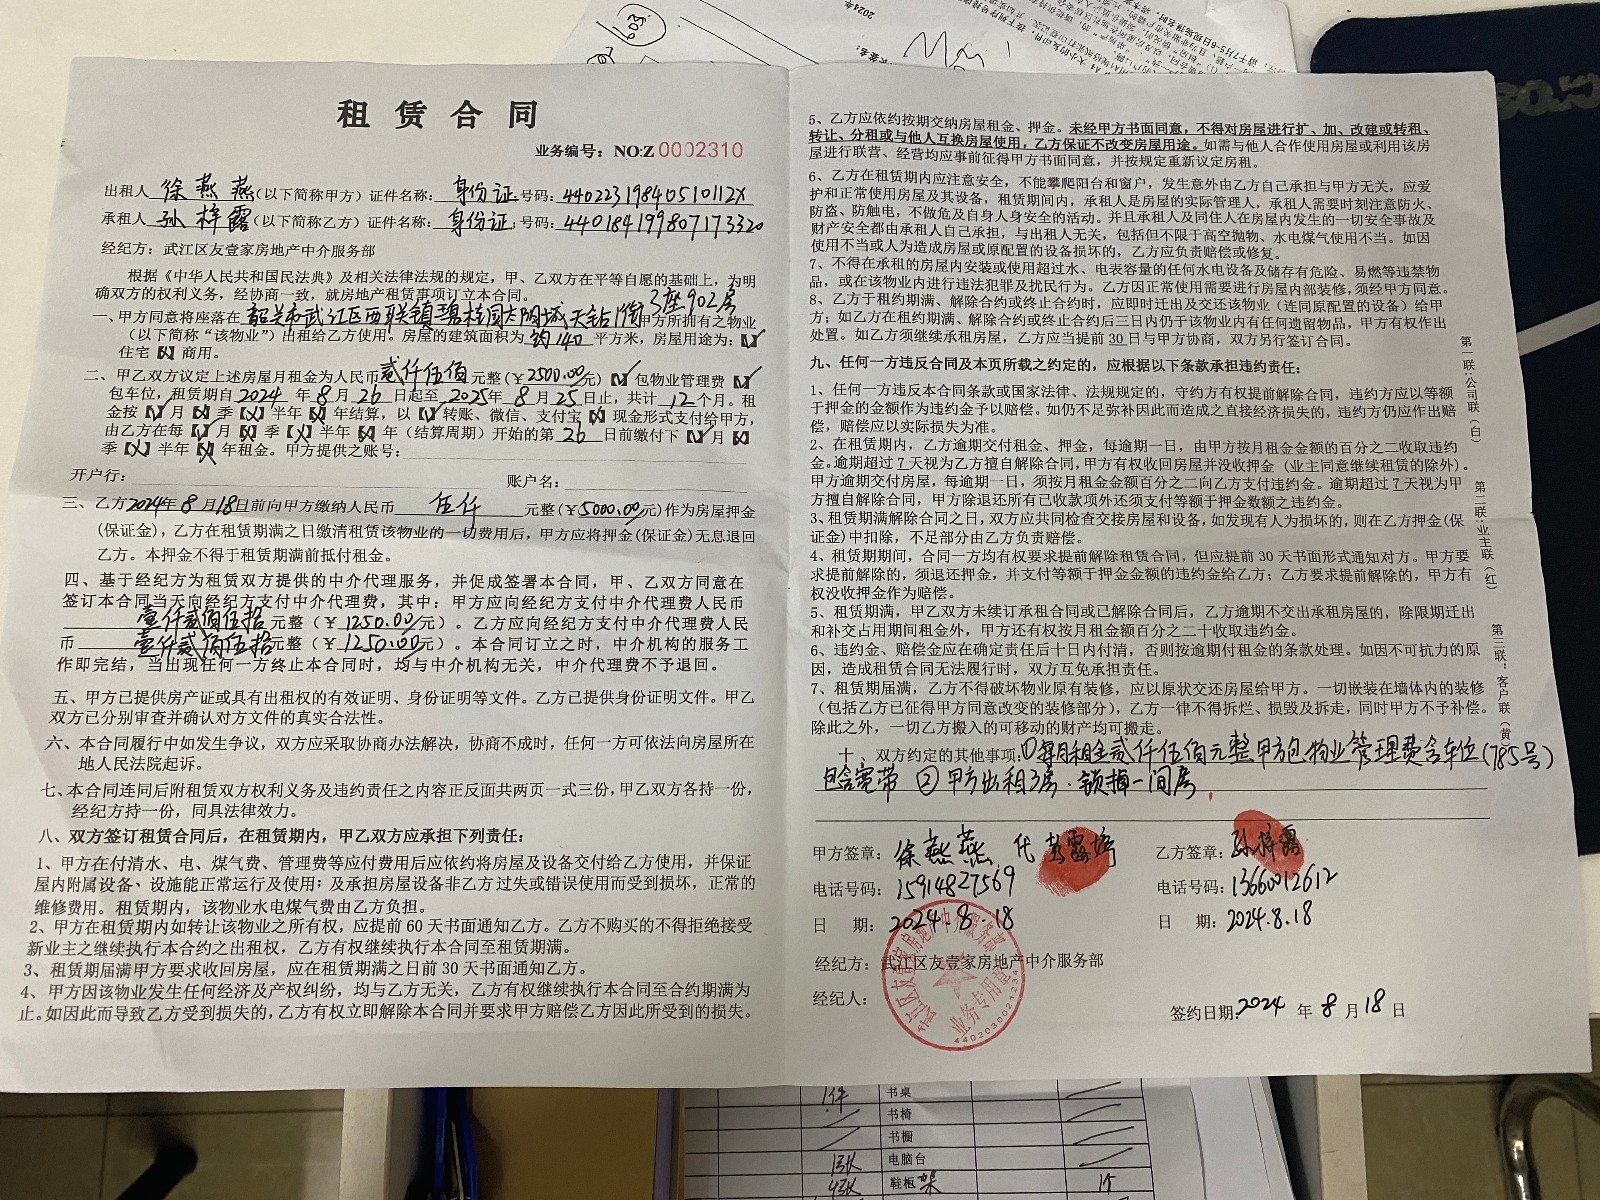 租赁合同
业务编号：NO:Z 0002310
出租人 徐燕燕 (以下简称甲方) 证件名称：身份证 号码：44022319840510112X
承租人 孙梓露 (以下简称乙方) 证件名称：身份证 号码：440184199807173320
经纪方：武江区友壹家房地产中介服务部
根据《中华人民共和国民法典》及相关法律法规的规定，甲、乙双方在平等自愿的基础上，为明
确双方的权利义务，经协商一致，就房地产租赁事项订立本合同。
一、甲方同意将座落在 韶关市武江区西联镇碧桂园太阳城天钻1街3座902房 甲方所拥有之物业
(以下简称“该物业”) 出租给乙方使用。房屋的建筑面积为 约140 平方米，房屋用途为：【✓】
住宅【✗】商用。
二、甲乙双方议定上述房屋月租金为人民币 贰仟伍佰 元整(￥2500.00元)【✓】包物业管理费【✓】
包车位，租赁期自 2024 年 8 月 26 日起至 2025 年 8 月 25 日止，共计 12 个月。租
金按【✓】月【✗】季【✗】半年【✗】年结算，以【✓】转账、微信、支付宝【✗】现金形式支付给甲方，
由乙方在每【✓】月【✗】季【✗】半年【✗】年（结算周期）开始的第 26 日前缴付下【✓】月【✗】
季【✗】半年【✗】年租金。甲方提供之账号：
开户行： 账户名：
三、乙方 2024年 8 月 18 日前向甲方缴纳人民币 伍仟 元整(￥5000.00元)作为房屋押金
(保证金)，乙方在租赁期满之日缴清租赁该物业的一切费用后，甲方应将押金(保证金)无息退回
乙方。本押金不得于租赁期满前抵付租金。
四、基于经纪方为租赁双方提供的中介代理服务，并促成签署本合同，甲、乙双方同意在
签订本合同当天向经纪方支付中介代理费，其中：甲方应向经纪方支付中介代理费人民币
壹仟贰佰伍拾 元整（￥1250.00元）。乙方应向经纪方支付中介代理费人民
币 壹仟贰佰伍拾 元整（￥1250.00元）。本合同订立之时，中介机构的服务工
作即完结，当出现任何一方终止本合同时，均与中介机构无关，中介代理费不予退回。
五、甲方已提供房产证或具有出租权的有效证明、身份证明等文件。乙方已提供身份证明文件。甲乙
双方已分别审查并确认对方文件的真实合法性。
六、本合同履行中如发生争议，双方应采取协商办法解决，协商不成时，任何一方可依法向房屋所在
地人民法院起诉。
七、本合同连同后附租赁双方权利义务及违约责任之内容正反面共两页一式三份，甲乙双方各持一份，
经纪方持一份，同具法律效力。
八、双方签订租赁合同后，在租赁期内，甲乙双方应承担下列责任：
1、甲方在付清水、电、煤气费、管理费等应付费用后应依约将房屋及设备交付给乙方使用，并保证
屋内附属设备、设施能正常运行及使用；及承担房屋设备非乙方过失或错误使用而受到损坏，正常的
维修费用。租赁期内，该物业水电煤气费由乙方负担。
2、甲方在租赁期内如转让该物业之所有权，应提前 60 天书面通知乙方。乙方不购买的不得拒绝接受
新业主之继续执行本合约之出租权，乙方有权继续执行本合同至租赁期满。
3、租赁期届满甲方要求收回房屋，应在租赁期满之日前 30 天书面通知乙方。
4、甲方因该物业发生任何经济及产权纠纷，均与乙方无关，乙方有权继续执行本合同至合约期满为
止。如因此而导致乙方受到损失的，乙方有权立即解除本合同并要求甲方赔偿乙方因此所受到的损失。
5、乙方应依约按期交纳房屋租金、押金。未经甲方书面同意，不得对房屋进行扩、加、改建或转租、
转让、分租或与他人互换房屋使用，乙方保证不改变房屋用途。如需与他人合作使用房屋或利用该房
屋进行联营、经营均应事前征得甲方书面同意，并按规定重新议定房租。
6、乙方在租赁期内应注意安全，不能攀爬阳台和窗户，发生意外由乙方自己承担与甲方无关，应爱
护和正常使用房屋及其设备，租赁期间内，承租人是房屋的实际管理人，承租人需要时刻注意防火、
防盗、防触电，不做危及自身人身安全的活动。并且承租人及同住人在房屋内发生的一切安全事故及
财产安全都由承租人自己承担，与出租人无关，包括但不限于高空抛物、水电煤气使用不当。如因
使用不当或人为造成房屋或原配置的设备损坏的，乙方应负责赔偿或修复。
7、不得在承租的房屋内安装或使用超过水、电表容量的任何水电设备及储存有危险、易燃等违禁物
品，或在该物业内进行违法犯罪及扰民行为。乙方因正常使用需要进行房屋内部装修，须经甲方同意。
8、乙方于租约期满、解除合约或终止合约时，应即时迁出及交还该物业（连同原配置的设备）给甲
方；如乙方在租约期满、解除合约或终止合约后三日内仍于该物业内有任何遗留物品，甲方有权作出
处置。如乙方须继续承租房屋，乙方应当提前 30 日与甲方协商，双方另行签订合同。
九、任何一方违反合同及本页所载之约定的，应根据以下条款承担违约责任：
1、任何一方违反本合同条款或国家法律、法规规定的，守约方有权提前解除合同，违约方应以等额
于押金的金额作为违约金予以赔偿。如仍不足弥补因此而造成之直接经济损失的，违约方仍应作出赔
偿，赔偿应以实际损失为准。
2、在租赁期内，乙方逾期交付租金、押金，每逾期一日，由甲方按月租金金额的百分之二收取违约
金。逾期超过 7 天视为乙方擅自解除合同，甲方有权收回房屋并没收押金（业主同意继续租赁的除外）。
甲方逾期交付房屋，每逾期一日，须按月租金金额百分之二向乙方支付违约金。逾期超过 7 天视为甲
方擅自解除合同，甲方除退还所有已收款项外还须支付等额于押金数额之违约金。
3、租赁期满解除合同之日，双方应共同检查交接房屋和设备，如发现有人为损坏的，则在乙方押金(保
证金)中扣除，不足部分由乙方负责赔偿。
4、租赁期期间，合同一方均有权要求提前解除租赁合同，但应提前 30 天书面形式通知对方。甲方要
求提前解除的，须退还押金，并支付等额于押金金额的违约金给乙方；乙方要求提前解除的，甲方有
权没收押金作为赔偿。
5、租赁期满，甲乙双方未续订承租合同或已解除合同后，乙方逾期不交出承租房屋的，除限期迁出
和补交占用期间租金外，甲方还有权按月租金额百分之二十收取违约金。
6、违约金、赔偿金应在确定责任后十日内付清，否则按逾期付租金的条款处理。如因不可抗力的原
因，造成租赁合同无法履行时，双方互免承担责任。
7、租赁期届满，乙方不得破坏物业原有装修，应以原状交还房屋给甲方。一切嵌装在墙体内的装修
（包括乙方已征得甲方同意改变的装修部分），乙方一律不得拆烂、损毁及拆走，同时甲方不予补偿。
除此之外，一切乙方搬入的可移动的财产均可搬走。
十、双方约定的其他事项：①每月租金贰仟伍佰元整甲方包物业管理费含车位(785号)
包含宽带 ②甲方出租3房.锁掉一间房
甲方签章：徐燕燕 代 彭露婷 乙方签章：孙梓露
电话号码：15914827569 电话号码：13660012612
日 期：2024.8.18 日 期：2024.8.18
经纪方：武江区友壹家房地产中介服务部
经纪人：
签约日期：2024 年 8 月 18 日
武江区友壹家房地产中介服务部
业务专用章
4402030021234
第一联：公司联（白）
第二联：业主联（红）
第三联：客户联（黄）
603
2024年
1件 书桌
书椅
书橱
1张 电脑台
鞋柜架 1个